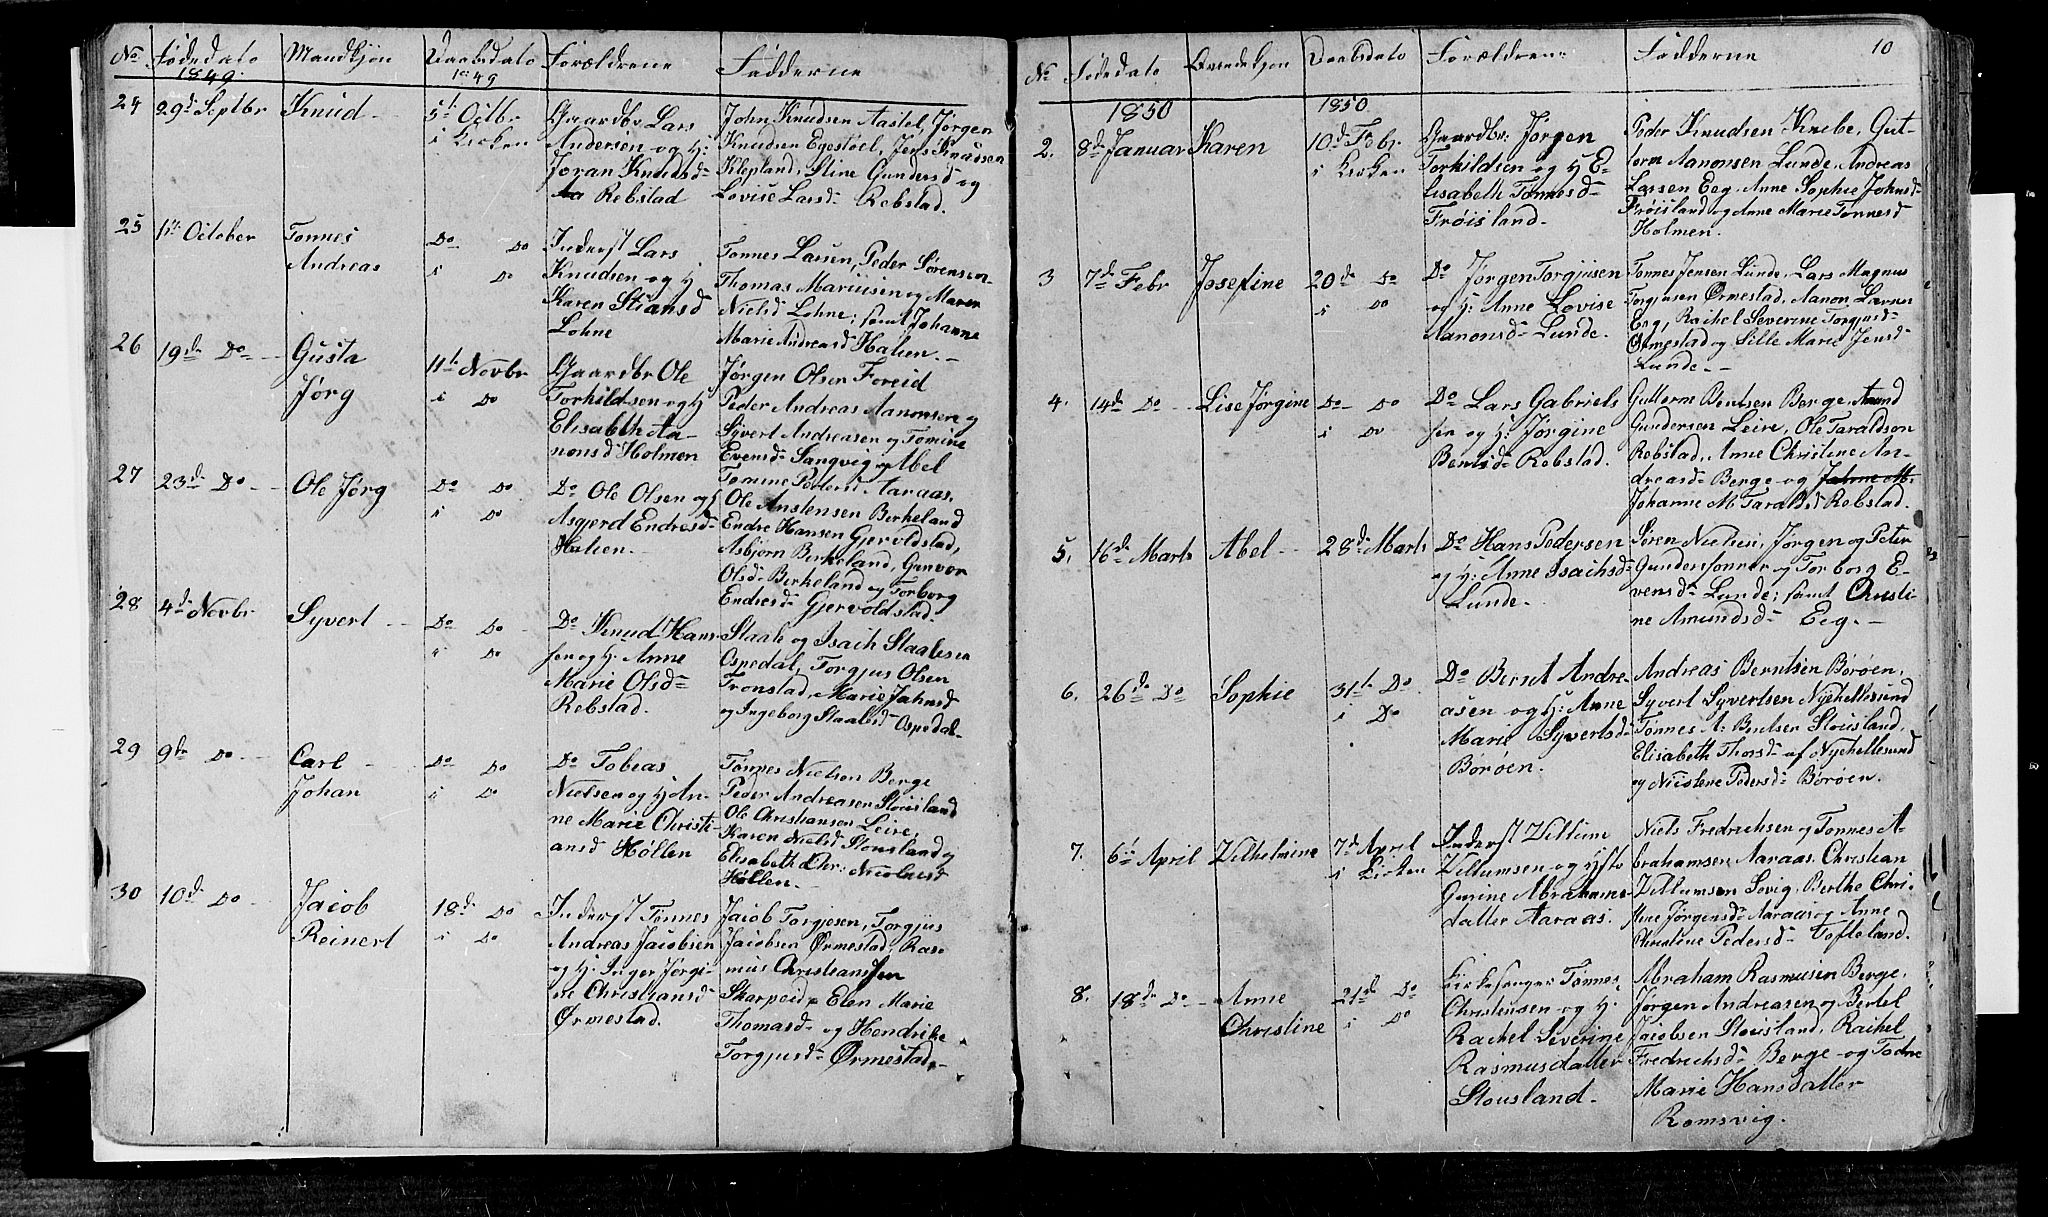 No Fødedato Mandkjøn Daabsdato Forældrene Fadderne
1849. 1849
24 29d Septbr Knud 5t Octbr i Kirken
Gaardbr Lars
Andersen og H:
Joran Knudsd
Rebstad
John Knudsen Aastel, Jørgen
Knudsen Egestøel, Jens Knudsen
Klepland, Stine Gundersd og
Lovise Larsd Rebstad.
25 1ste October Tønnes Andreas Do Do i Do
Inderst Lars
Knudsen og H
Karen Stiansd
Lohne
Tønnes Larsen, Peder Sørensen
Thomas Mariusen og Maren
Nielsd Lohne; samt Johanne
Marie Andreasd Halsen.
26 19de Do Gusta Jørg 11t Novbr i Do
Gaardbr Ole
Torkildsen og H
Elisabeth Aa-
nonsd Holmen
Jørgen Olsen Foreid
Peder Andreas Aanonsen og
Syvert Andreasen og Tomine
Evensd Sangvig og Abel
Tomine Pedersd Aaraas.
27 23d Do Ole Jørg Do Do i Do
Do Ole Olsen og H
Asgjerd Endresd
Halsen.
Ole Anstensen Birkeland
Endre Hansen Gjervoldstad,
Asbjørn Birkeland, Gunvor
Olsd Birkeland og Torborg
Endresd Gjervoldstad.
28 4d Novbr Syvert Do Do i Do
Do Knud Hans-
sen og H: Anne
Marie Olsd
Rebstad.
Staale og Isach Staalesen
Ospedal, Torgjus Olsen
Tronstad, Marie Jahnsd
og Ingeborg Staalesd Ospedal
29 9de Do Carl Johan Do Do i Do
Do Tobias
Nielsen og H An-
ne Marie Christi-
ansd Høllen
Tønnes Nielsen Berge
Peder Andreasen Stousland
Ole Christiansen Leire,
Karen Nielsd Stousland og
Elisabeth Chr: Nicolaisd
Høllen.
30 10d Do Jacob Reinert 18d Do i Do
Inderst Tønnes
Andreas Jacobsen
og H. Inger Jørgi-
ne Christiansd
Ørmestad.
Jacob Torgjesen, Torgjus
Jacobsen Ørmestad, Ras-
mus Christianssen
Skarpeid, Elen Marie
Thomasd og Hendrikke
Torgjusd Ørmestad.
10
No Fødedato Qvindekjøn Daabsdato Forældrene Fadderne
1850 1850
2. 8d Januar Karen 10d Febr. i Kirken
Gaardbr: Jørgen
Torkildsen og H E-
lisabeth Tønnesd
Frøisland.
Peder Knudsen Knibe, Gut-
torm Aanonsen Lunde, Andreas
Larsen Eeg, Anne Sophie Johnsd
Frøisland og Anne Marie Tønnesd
Holmen.
3 7d Febr Josefine 20d Do i Do
Do Jørgen Torgjusen
og H: Anne Lovise
Aanonsd Lunde.
Tønnes Jensen Lunde, Lars Magnus
Torgjusen Ørmestad, Aanon Larsen
Eeg, Rachel Severine Torgjusd
Ørmestad og Sille Marie Jensd
Lunde.
4. 14d Do Lise Jørgine Do Do i Do
Do Lars Gabriels
sen og H: Jørgine
Berntsd Rebstad.
Guttorm Berntsen Berge, Amund
Gundersen Leire, Ole Taraldsen
Rebstad, Anne Christine An-
dreasd Berge og Jahne M.
Johanne M Taraldsd Rebstad.
5. 16d Marts Abel 28d Marts
Do Hans Pedersen
og H: Anne Isachsd
Lunde.
Søren Nielsen, Jørgen og Peter
Gunderssønner og Torborg E-
vensd Lunde; samt Christi-
ne Amundsd Eeg.
6. 26d Do Sophie 31te Do. i Do
Do Bernt Andre-
asen og H: Anne
Marie Syvertsd
Borøen.
Andreas Berntsen Borøen,
Syvert Syvertsen Nyehellesund
Tønnes A. Bentsen Stousland,
Elisabeth Thorsd af Nyehellesund
og Nicolene Pedersd Børøen.
7. 6te April Vilhelmine 7d April i Kirken
Inderst Villum
Villumsen og Hst
Gurine Abrahams-
datter Aaraas.
Niels Fredrichsen og Tønnes A-
brahamsen Aaraas, Christian
Villumsen Søvig, Berthe Chri-
stine Jørgensd Aaraas og Anne
Christine Pedersd Tofteland.
8. 18d Do Anne Christine 21d Do i Do
Kirkesanger Tønnes
Christensen og H.
Rachel Severine
Rasmusdatter
Stousland.
Abraham Rasmusen Berge,
Jørgen Andreasen og Bertel
Jacobsen Stousland, Rachel
Fredrichsd Berge og Todne
Marie Hansdatter
Romsvig.